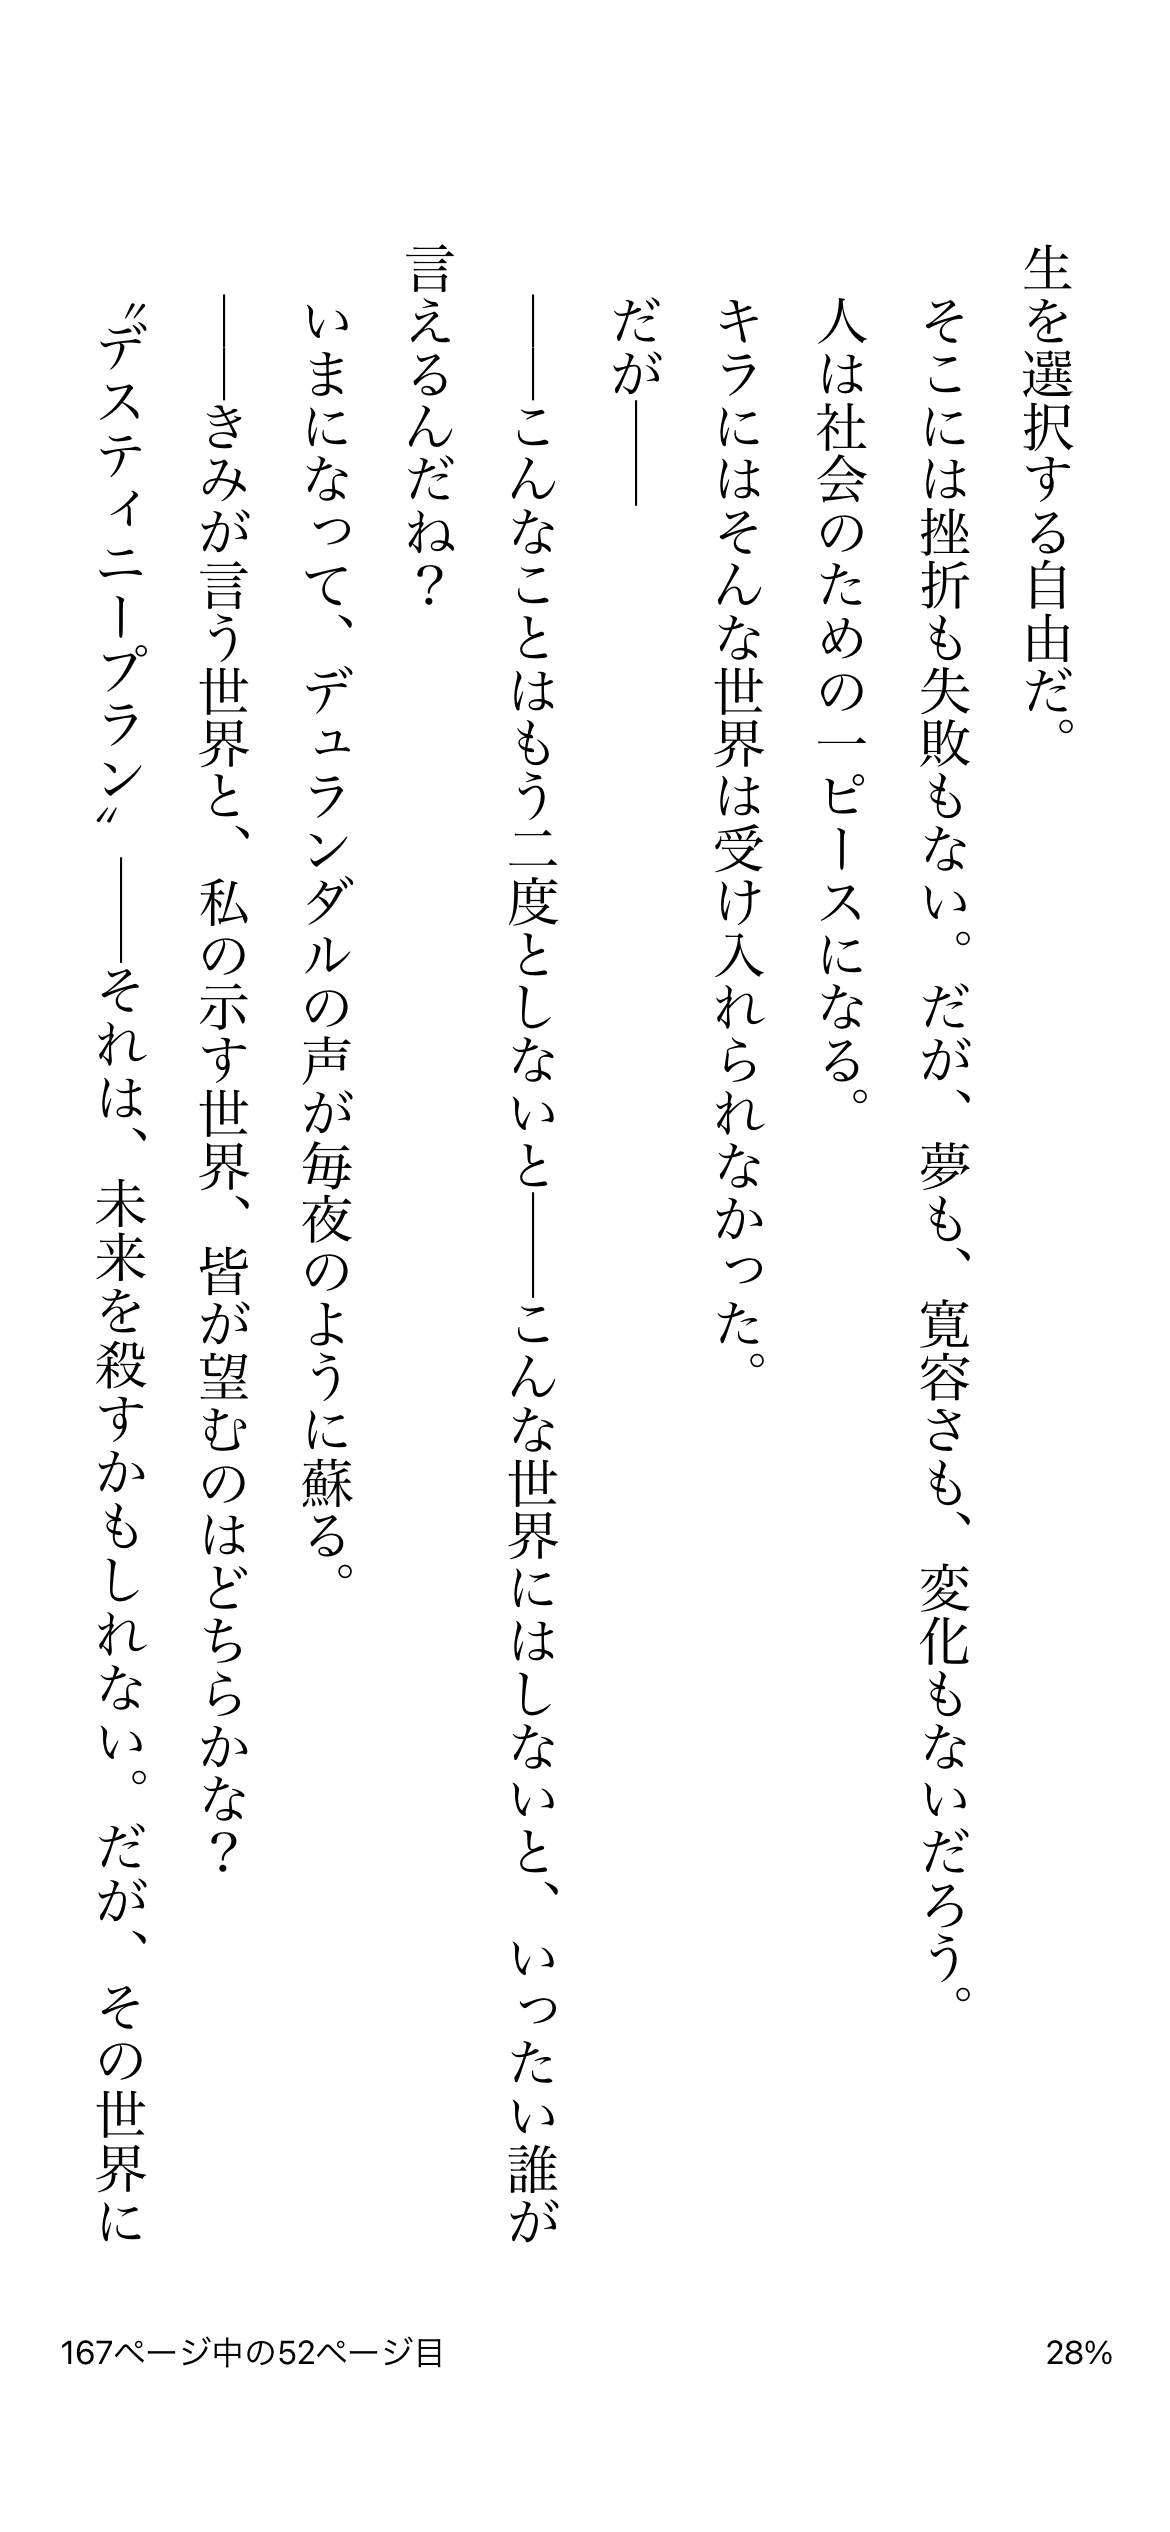 生を選択する自由だ。
　そこには挫折も失敗もない。だが、夢も、寛容さも、変化もないだろう。
　人は社会のための一ピースになる。
　キラにはそんな世界は受け入れられなかった。
　だが――
　――こんなことはもう二度としないと――こんな世界にはしないと、いったい誰が
言えるんだね？
　いまになって、デュランダルの声が毎夜のように蘇る。
　――きみが言う世界と、私の示す世界、皆が望むのはどちらかな？
　〝デスティニープラン〟――それは、未来を殺すかもしれない。だが、その世界に
167ページ中の52ページ目
28%